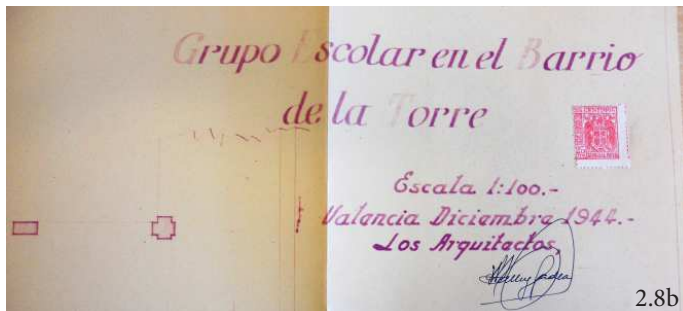 Grupo Escolar en el Barrio
de la Torre
Escala 1:100.-
Valencia Diciembre 1944.-
Los Arquitectos,
2.8b